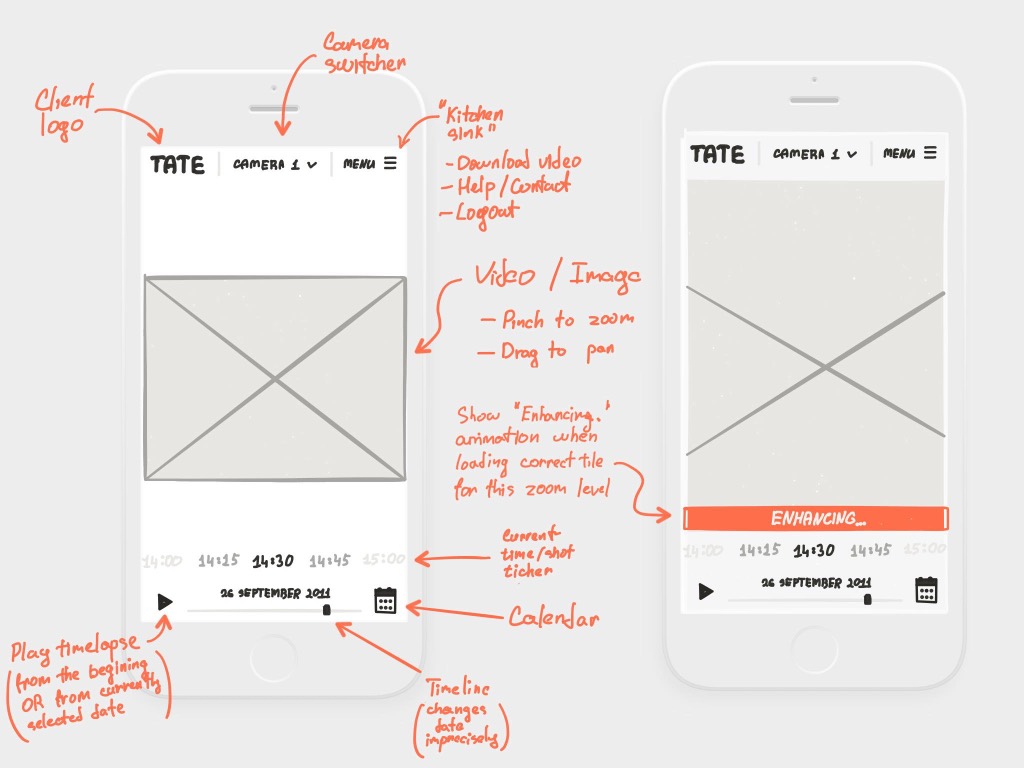 Camera
switcher
Client
logo
"Kitchen
sink"
- Download video
- Help/Contact
- Logout
TATE CAMERA 1 MENU
Video / Image
- Pinch to zoom
- Drag to pan
Show "Enhancing."
animation when
loading correct tile
for this zoom level
Current
time/shot
ticher
14:00 14:15 14:30 14:45 15:00
26 SEPTEMBER 2011
Calendar
Play timelapse
(from the begining
OR from currently
selected date)
Timeline
(changes
date
imprecisely)
TATE CAMERA 1 MENU
ENHANCING...
14:00 14:15 14:30 14:45 15:00
26 SEPTEMBER 2011